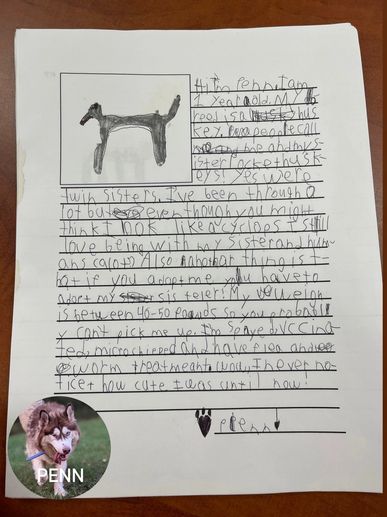 Hi I'm Penn. I am
1 year old. My b
reed is a hus
key. people call
me and my s
ister Pocket husk
eys! Yes we're
twin sisters. I've been through a
lot but even though you might
think I look like a cyclops I still
love being with my sister and hum-
ans (a lot). Also another thing is t-
hat if you adopt me you have to
adopt my sister! My weigh
is between 40-50 pounds so you probabl
y can't pick me up. I'm Spayed, vccina-
ted, microchipped and have flea and
worm treatment. wow, I never no-
ticet how cute I was until now!
Penn
PENN